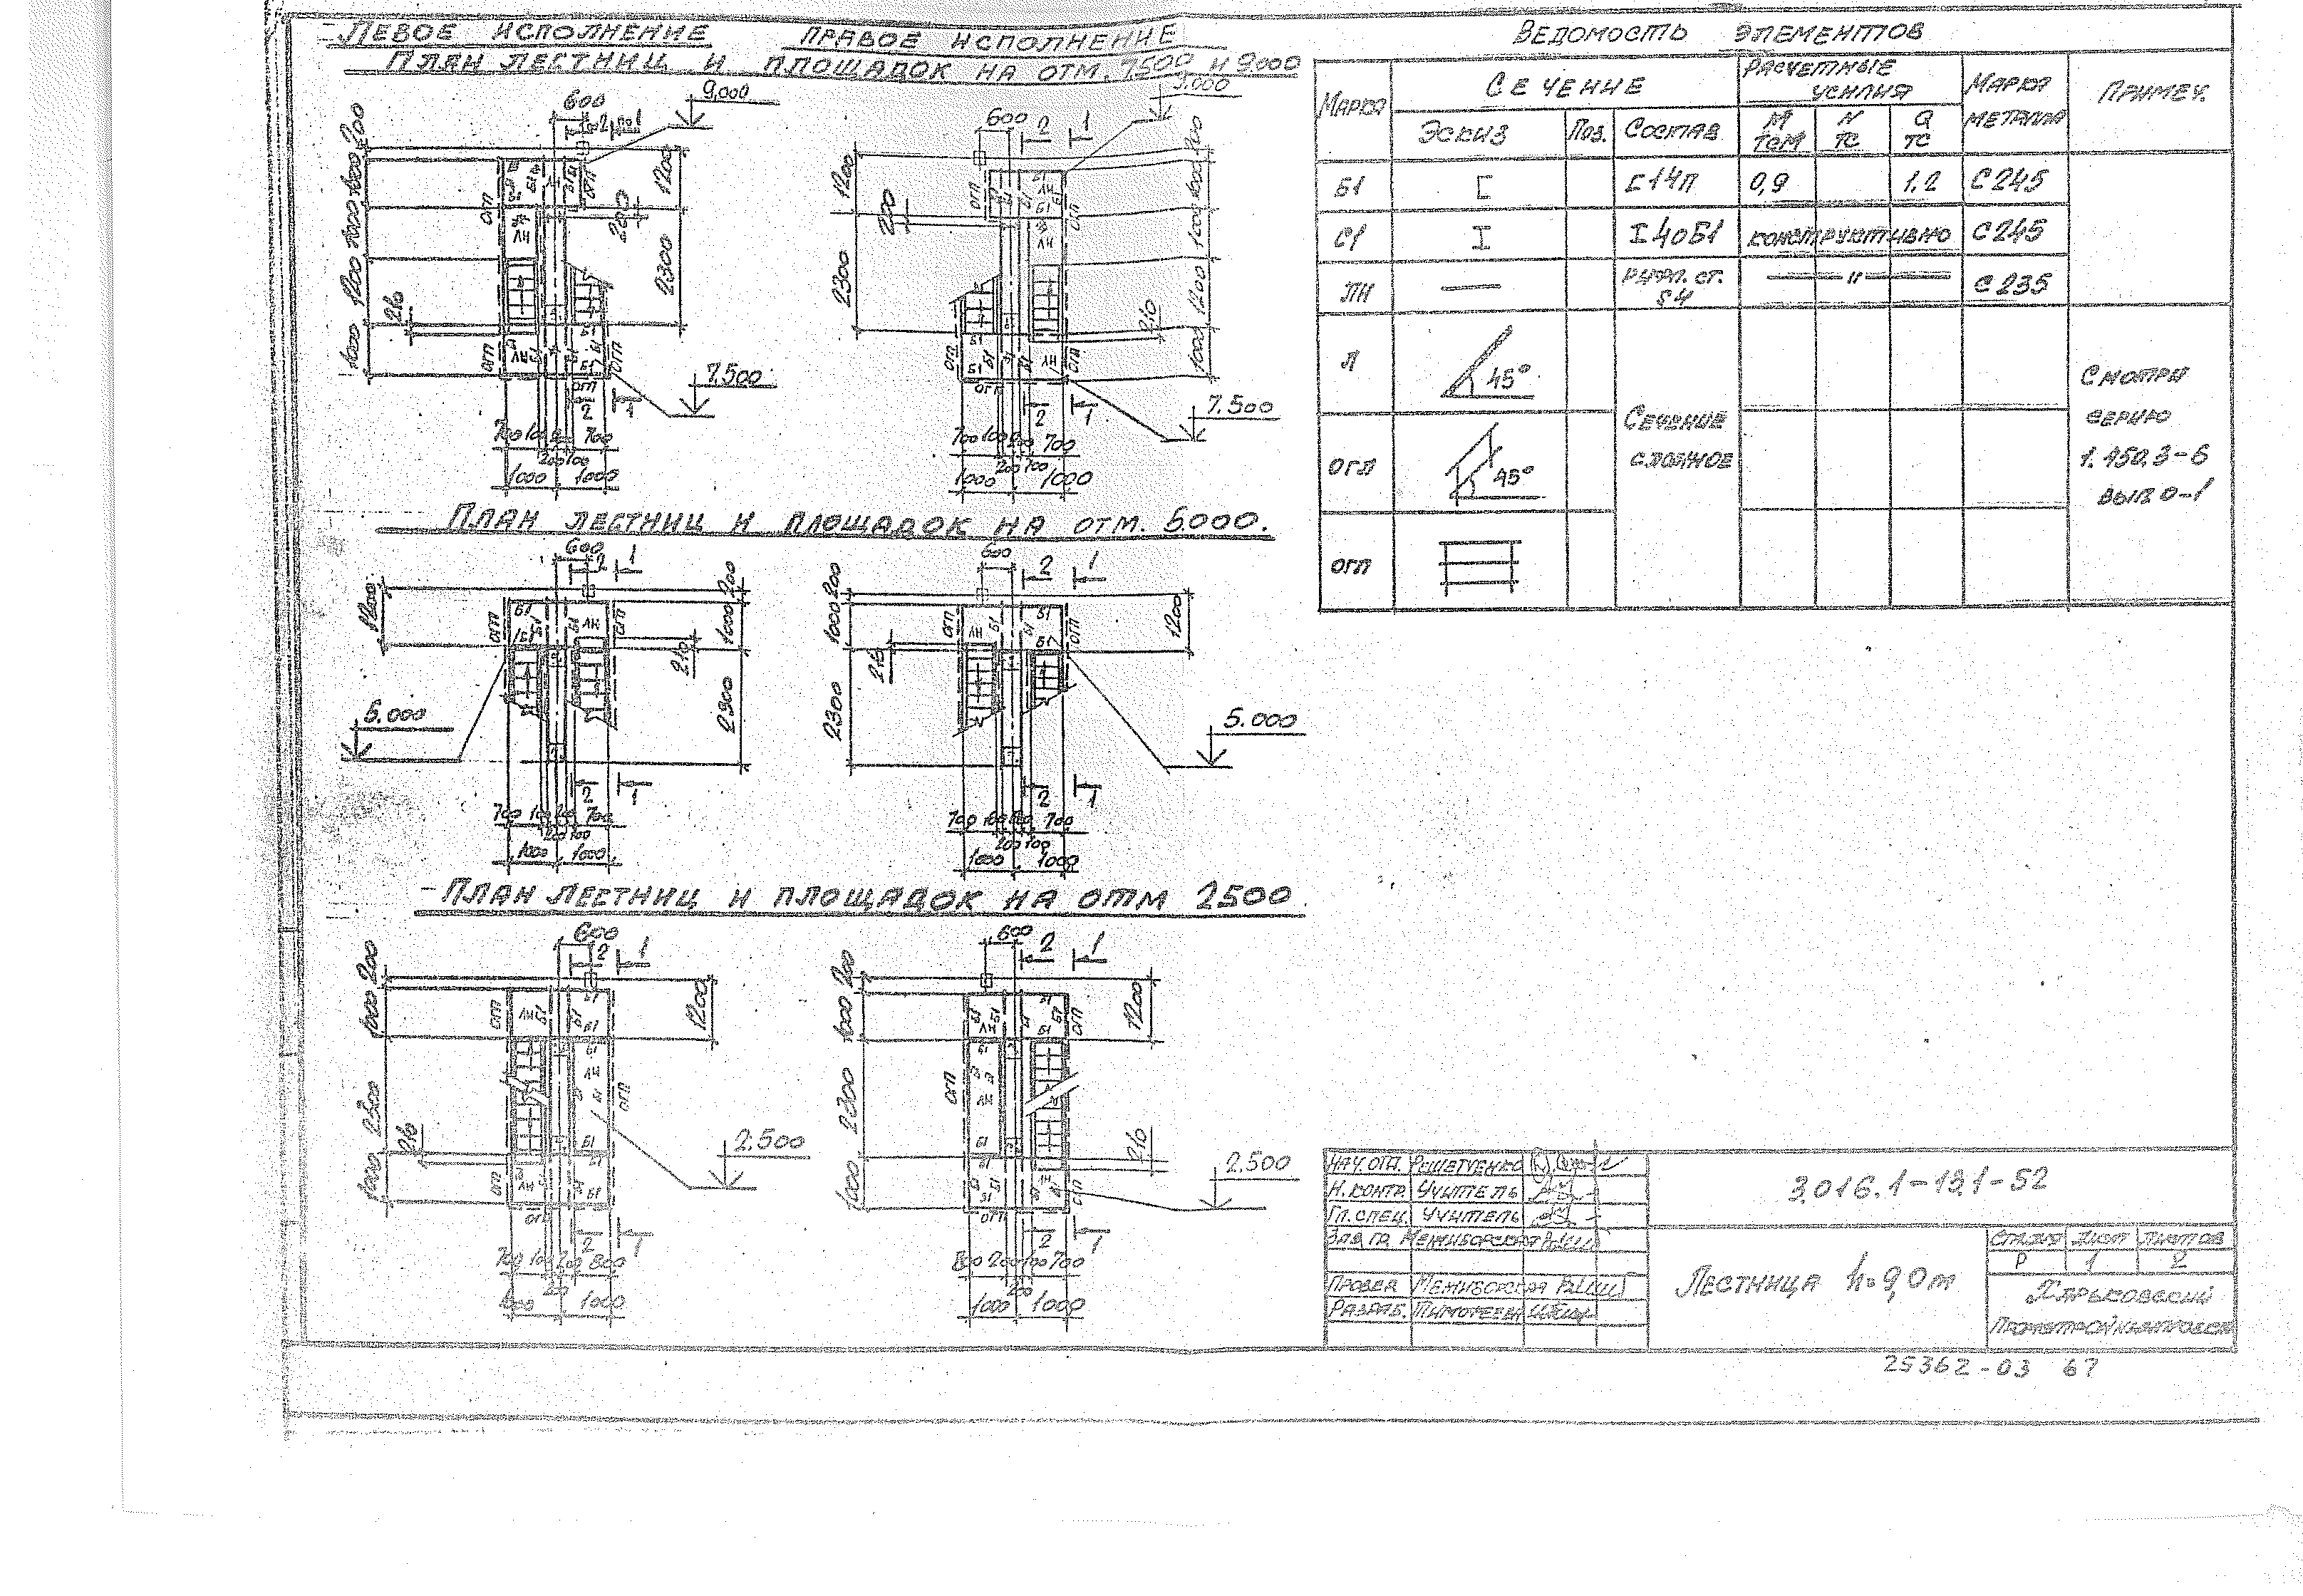 ЛЕВОЕ ИСПОЛНЕНИЕ ПРАВОЕ ИСПОЛНЕНИЕ
ПЛАН ЛЕСТНИЦ И ПЛОЩАДОК НА ОТМ. 7500 И 9000
9,000
9.000
600
600
2 1
200
1000
1000
1200
1000
1200
2300
200
210
ОГП
ЛН
Б1
1200
2300
200
200
1000
1000
1200
1000
210
7.500
7.500
2 1
2 1
700 100 200 700
200 100
1000 1000
700 100 200 700
200 100
1000 1000
ПЛАН ЛЕСТНИЦ И ПЛОЩАДОК НА ОТМ. 5.000.
600
2 1
600
2 1
1200
200
1000
2300
210
ОГП
Б1
ЛН
200
1000
2300
210
1200
5.000
5.000
2 1
2 1
700 100 200 700
200 100
1000 1000
700 100 200 700
200 100
1000 1000
ПЛАН ЛЕСТНИЦ И ПЛОЩАДОК НА ОТМ 2500
600
2 1
600
2 1
200
1000
2300
1000
210
1200
ОГП
ЛН
Б1
200
1000
2300
1000
210
1200
2.500
2.500
2 1
2 1
700 100 200 800
200
1000 1000
800 200 100 700
200
1000 1000
ВЕДОМОСТЬ ЭЛЕМЕНТОВ
МАРКА СЕЧЕНИЕ РАСЧЕТНЫЕ УСИЛИЯ МАРКА МЕТАЛЛА ПРИМЕЧ.
ЭСКИЗ ПОЗ. СОСТАВ М ТСМ N ТС Q ТС
Б1 [ [14П 0,9 1.2 С245
С1 I I40Б1 КОНСТРУКТИВНО С245
ЛН — РИФЛ. СТ. δ4 —〃— С235
Л 45°
ОГЛ 45°
СЕЧЕНИЕ
СЛОЖНОЕ
ОГП
СМОТРИ
СЕРИЮ
1.450.3-6
ВЫП.0-1
НАЧ.ОТД. РЕШЕТЧЕНКО
Н.КОНТР. УЧИТЕЛЬ
ГЛ.СПЕЦ. УЧИТЕЛЬ
ЗАВ.ГР. МЕЖИБОРСКАЯ
ПРОВЕР. МЕЖИБОРСКАЯ
РАЗРАБ. ТИМОФЕЕВА
3.016.1-13.1-52
ЛЕСТНИЦА h=9,0м
СТАДИЯ ЛИСТ ЛИСТОВ
Р 1 2
ХАРЬКОВСКИЙ
ПРОМСТРОЙНИИПРОЕКТ
25362-03 67